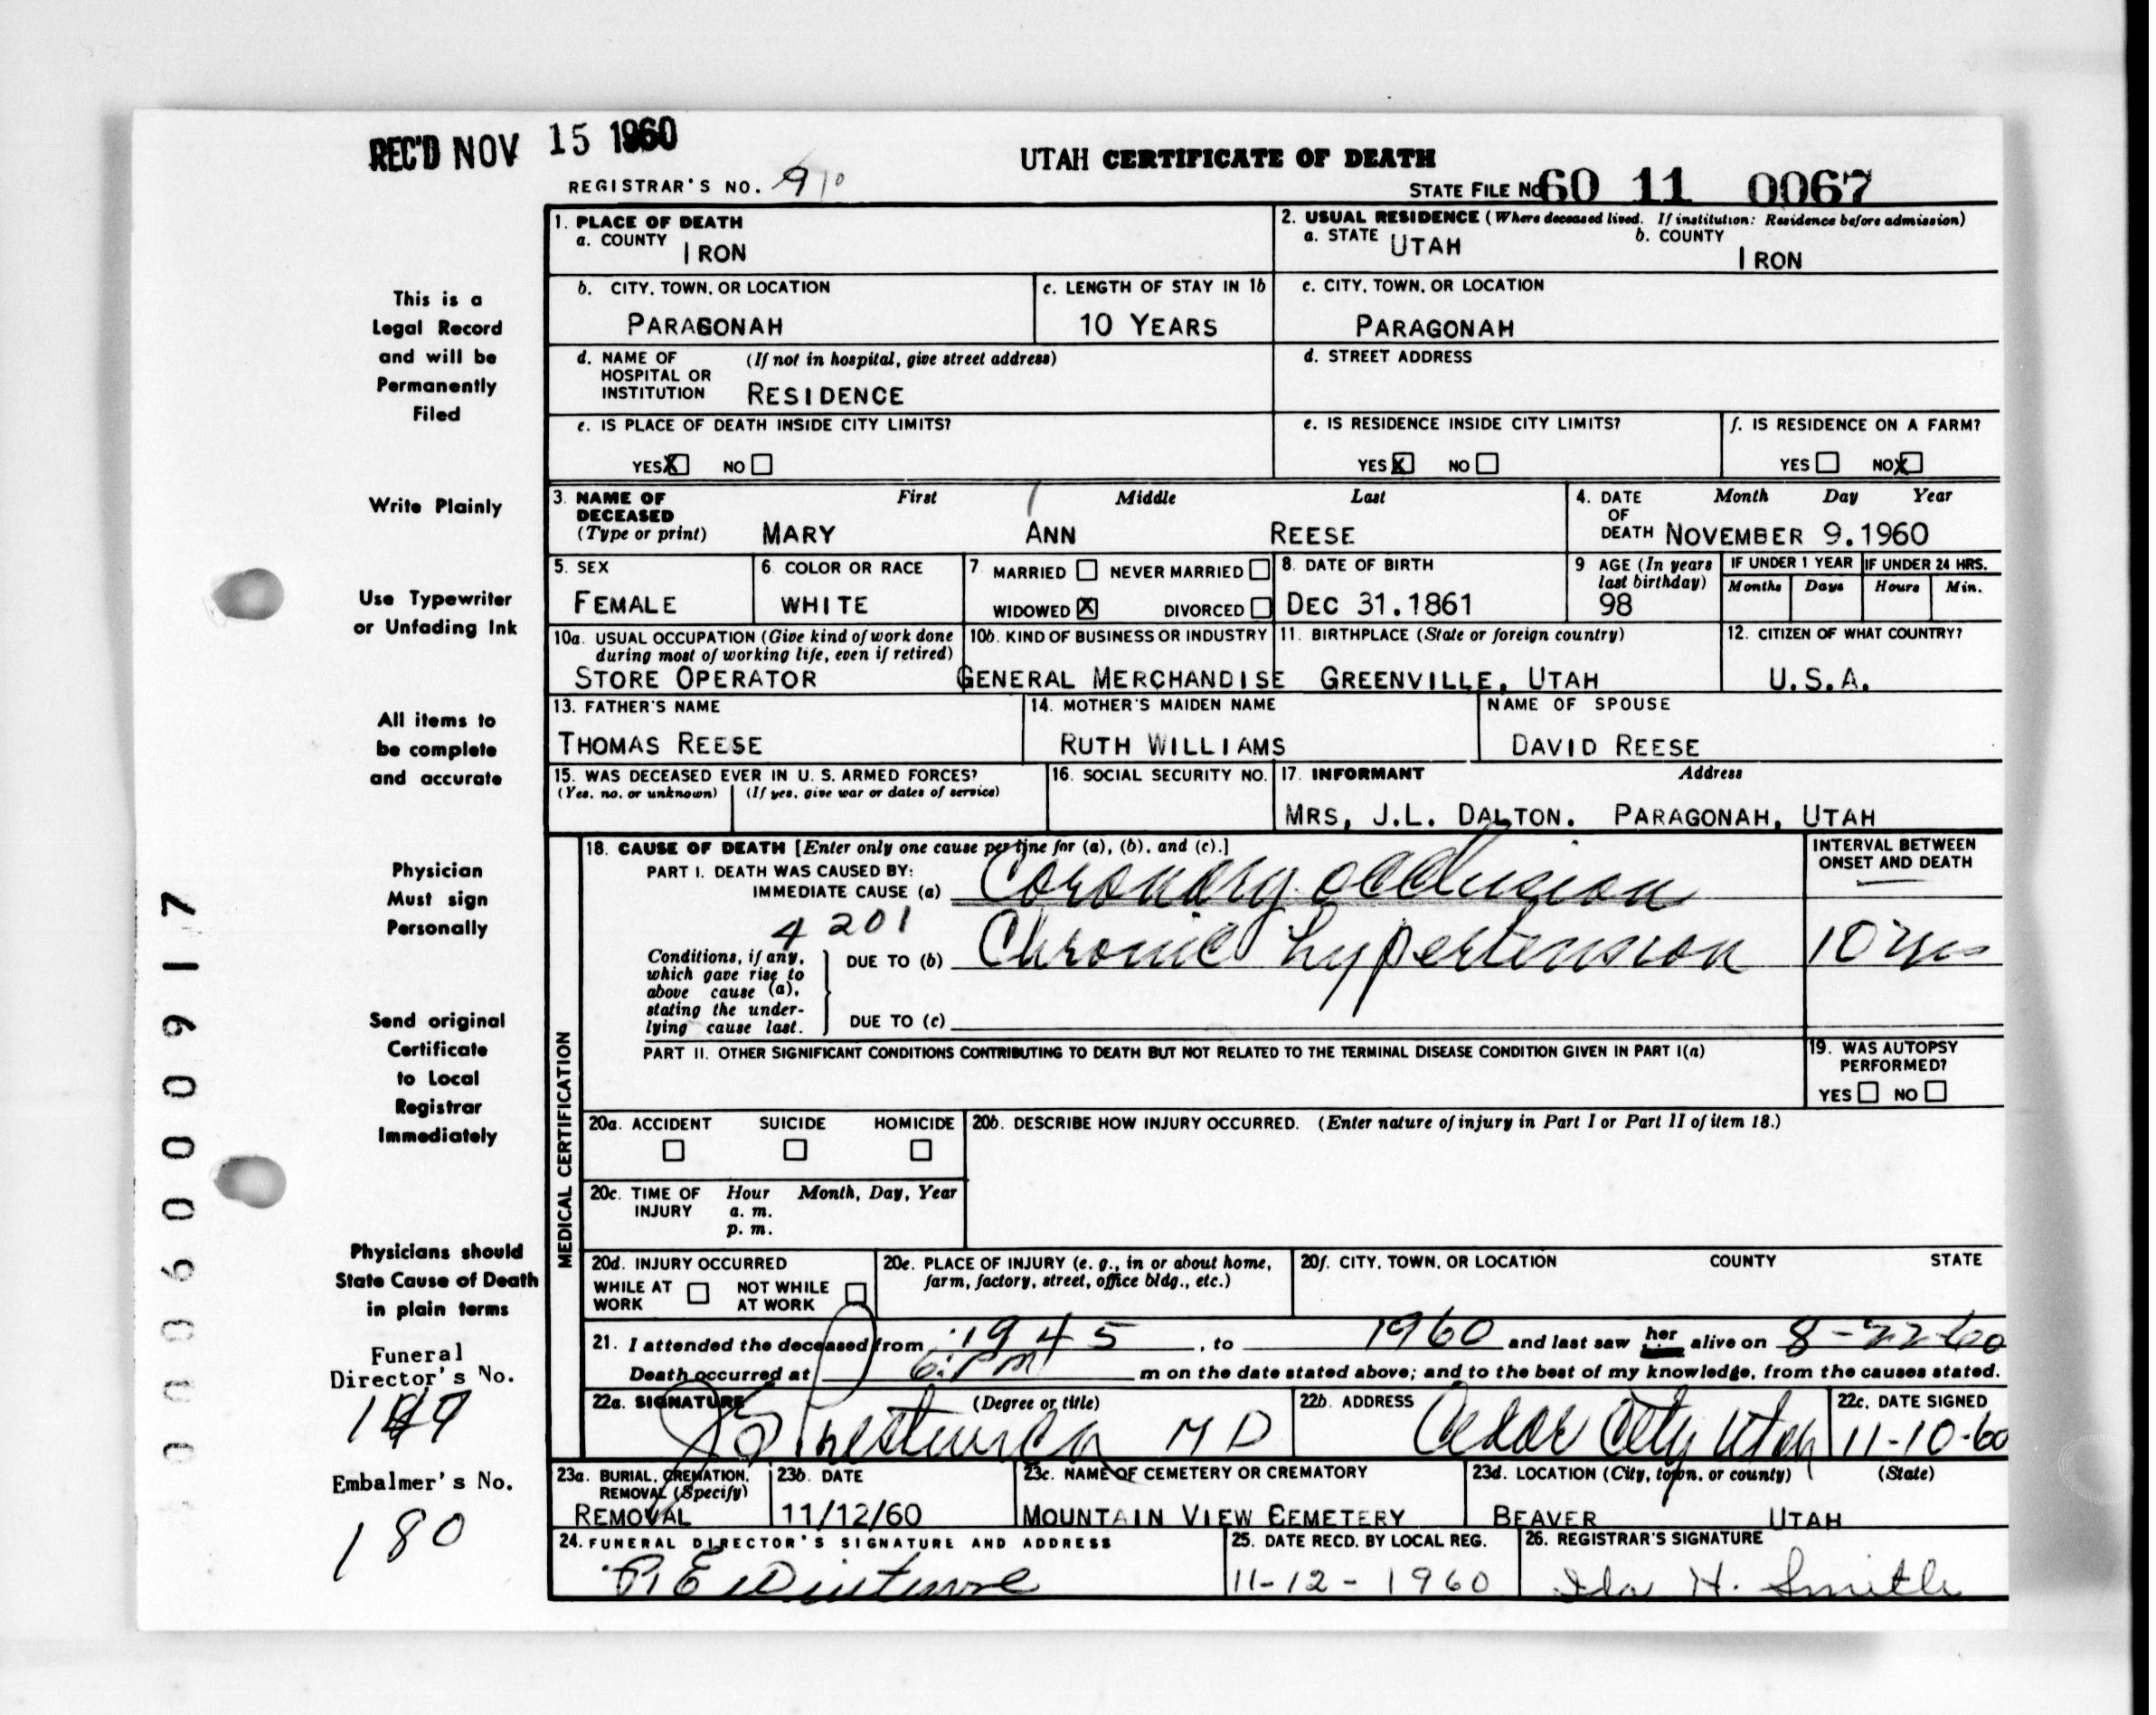 REC'D NOV 15 1960
UTAH CERTIFICATE OF DEATH
REGISTRAR'S NO. 910
STATE FILE No. 60 11 0067
1. PLACE OF DEATH
a. COUNTY IRON
2. USUAL RESIDENCE (Where deceased lived. If institution: Residence before admission)
a. STATE UTAH b. COUNTY IRON
b. CITY, TOWN, OR LOCATION PARAGONAH
c. LENGTH OF STAY IN 1b 10 YEARS
c. CITY, TOWN, OR LOCATION PARAGONAH
d. NAME OF HOSPITAL OR INSTITUTION (If not in hospital, give street address) RESIDENCE
d. STREET ADDRESS
e. IS PLACE OF DEATH INSIDE CITY LIMITS?
YES X NO
e. IS RESIDENCE INSIDE CITY LIMITS?
YES X NO
f. IS RESIDENCE ON A FARM?
YES NO X
3. NAME OF DECEASED (Type or print)
First Middle Last
MARY ANN REESE
4. DATE OF DEATH Month Day Year
NOVEMBER 9.1960
5. SEX FEMALE
6. COLOR OR RACE WHITE
7. MARRIED NEVER MARRIED
WIDOWED X DIVORCED
8. DATE OF BIRTH DEC 31.1861
9 AGE (In years last birthday) 98
IF UNDER 1 YEAR Months Days
IF UNDER 24 HRS. Hours Min.
10a. USUAL OCCUPATION (Give kind of work done during most of working life, even if retired) STORE OPERATOR
10b. KIND OF BUSINESS OR INDUSTRY GENERAL MERCHANDISE
11. BIRTHPLACE (State or foreign country) GREENVILLE, UTAH
12. CITIZEN OF WHAT COUNTRY? U.S.A.
13. FATHER'S NAME THOMAS REESE
14. MOTHER'S MAIDEN NAME RUTH WILLIAMS
NAME OF SPOUSE DAVID REESE
15. WAS DECEASED EVER IN U. S. ARMED FORCES?
(Yes, no, or unknown) (If yes, give war or dates of service)
16. SOCIAL SECURITY NO.
17. INFORMANT Address
MRS, J.L. DALTON. PARAGONAH, UTAH
MEDICAL CERTIFICATION
18. CAUSE OF DEATH [Enter only one cause per line for (a), (b), and (c).]
INTERVAL BETWEEN ONSET AND DEATH
PART I. DEATH WAS CAUSED BY:
IMMEDIATE CAUSE (a) Coronary occlusion
4201
Conditions, if any, which gave rise to above cause (a), stating the underlying cause last.
DUE TO (b) Chronic hypertension 10 yrs
DUE TO (c)
PART II. OTHER SIGNIFICANT CONDITIONS CONTRIBUTING TO DEATH BUT NOT RELATED TO THE TERMINAL DISEASE CONDITION GIVEN IN PART I(a)
19. WAS AUTOPSY PERFORMED?
YES NO
20a. ACCIDENT SUICIDE HOMICIDE
20b. DESCRIBE HOW INJURY OCCURRED. (Enter nature of injury in Part I or Part II of item 18.)
20c. TIME OF INJURY Hour Month, Day, Year
a. m.
p. m.
20d. INJURY OCCURRED
WHILE AT WORK NOT WHILE AT WORK
20e. PLACE OF INJURY (e. g., in or about home, farm, factory, street, office bldg., etc.)
20f. CITY, TOWN, OR LOCATION COUNTY STATE
21. I attended the deceased from 1945, to 1960 and last saw her alive on 8-22-60
Death occurred at 6: PM m on the date stated above; and to the best of my knowledge, from the causes stated.
22a. SIGNATURE (Degree or title) M D
22b. ADDRESS Cedar City Utah
22c. DATE SIGNED 11-10-60
23a. BURIAL, CREMATION, REMOVAL (Specify) REMOVAL
23b. DATE 11/12/60
23c. NAME OF CEMETERY OR CREMATORY MOUNTAIN VIEW CEMETERY
23d. LOCATION (City, town, or county) (State)
BEAVER UTAH
24. FUNERAL DIRECTOR'S SIGNATURE AND ADDRESS
25. DATE RECD. BY LOCAL REG. 11-12-1960
26. REGISTRAR'S SIGNATURE Ida H. Smith
This is a
Legal Record
and will be
Permanently
Filed
Write Plainly
Use Typewriter
or Unfading Ink
All items to
be complete
and accurate
Physician
Must sign
Personally
Send original
Certificate
to Local
Registrar
Immediately
Physicians should
State Cause of Death
in plain terms
Funeral
Director's No.
Embalmer's No.
180